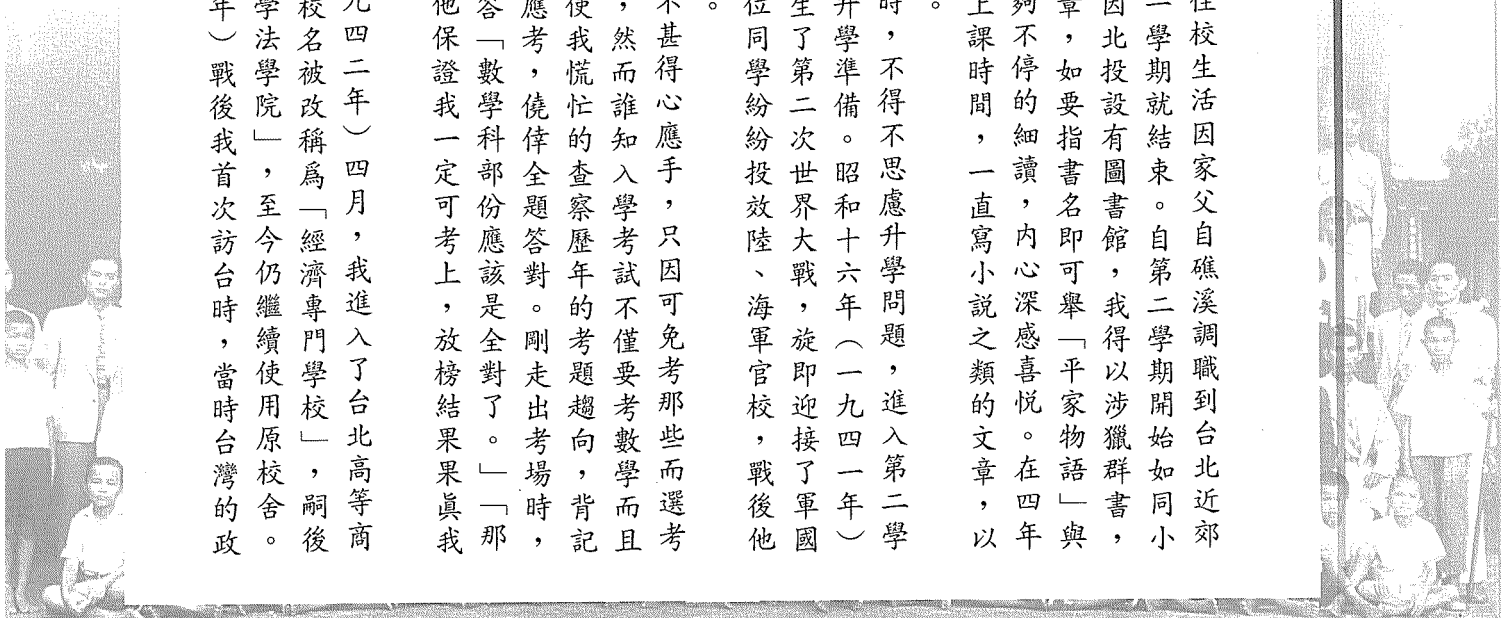 住校生活因家父自礁溪調職到台北近郊
一學期就結束。自第二學期開始如同小
因北投設有圖書館，我得以涉獵群書，
章，如要指書名即可舉「平家物語」與
夠不停的細讀，內心深感喜悅。在四年
上課時間，一直寫小說之類的文章，以
。
時，不得不思慮升學問題，進入第二學
升學準備。昭和十六年（一九四一年）
生了第二次世界大戰，旋即迎接了軍國
位同學紛紛投效陸、海軍官校，戰後他
。
不甚得心應手，只因可免考那些而選考
，然而誰知入學考試不僅要考數學而且
使我慌忙的查察歷年的考題趨向，背記
應考，僥倖全題答對。剛走出考場時，
答「數學科部份應該是全對了。」「那
他保證我一定可考上，放榜結果果真我
九四二年）四月，我進入了台北高等商
校名被改稱爲「經濟專門學校」，嗣後
學法學院」，至今仍繼續使用原校舍。
年）戰後我首次訪台時，當時台灣的政